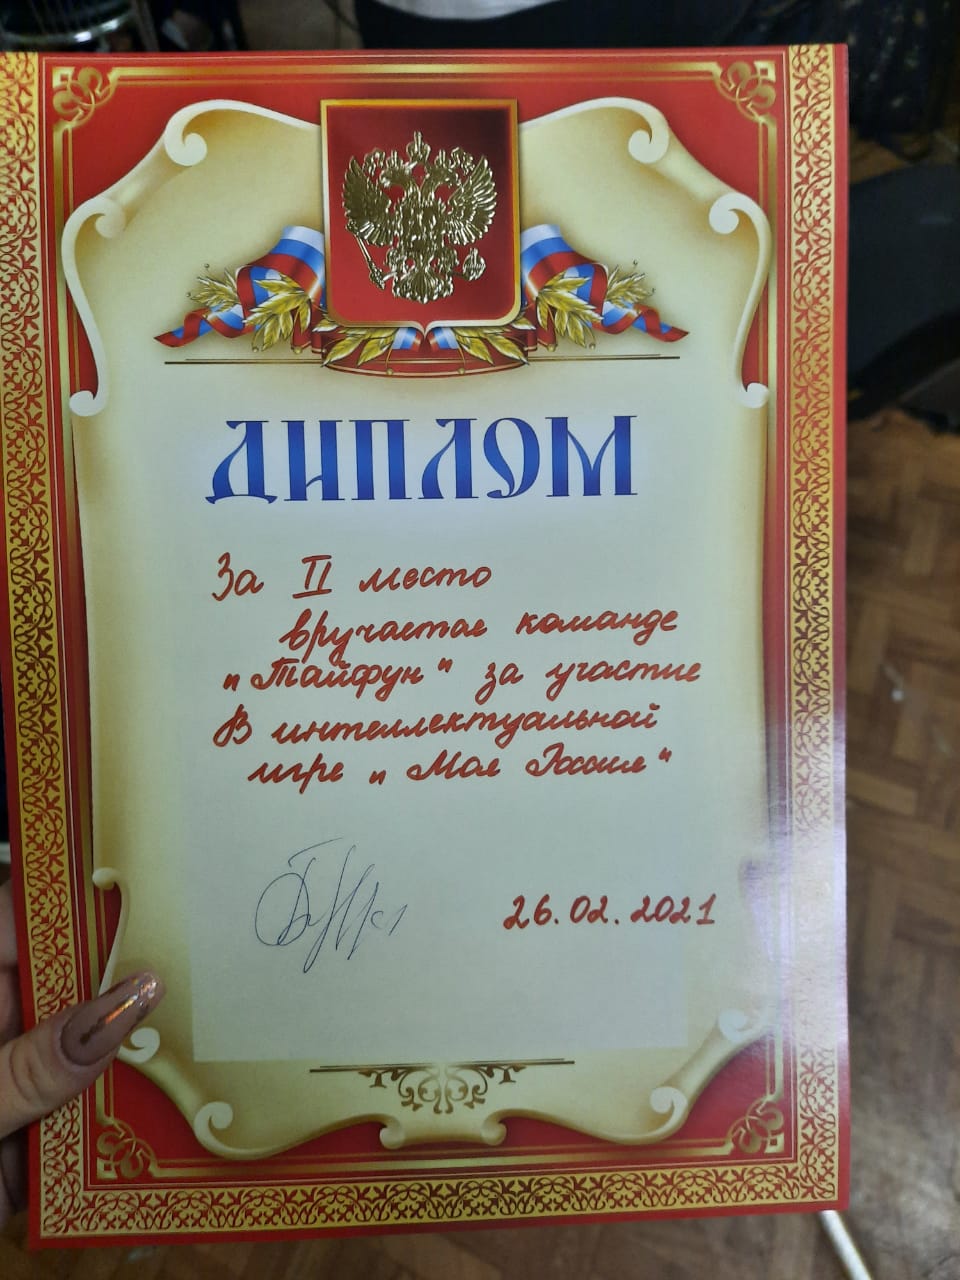 ДИПЛОМ
За II место
вручается команде
"Тайфун" за участие
В интеллектуальной
игре "Моя Россия"
26.02.2021